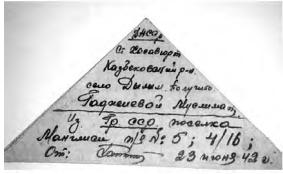 ДАССР
Ст. Хасавюрт
Казбековский р-н.
село Дылым. Получить
Гаджиевой Муслимат
Из Гр. ССР поселка
Манглиси п/я № 5; 4/16;
От: 23 июня 43 г.